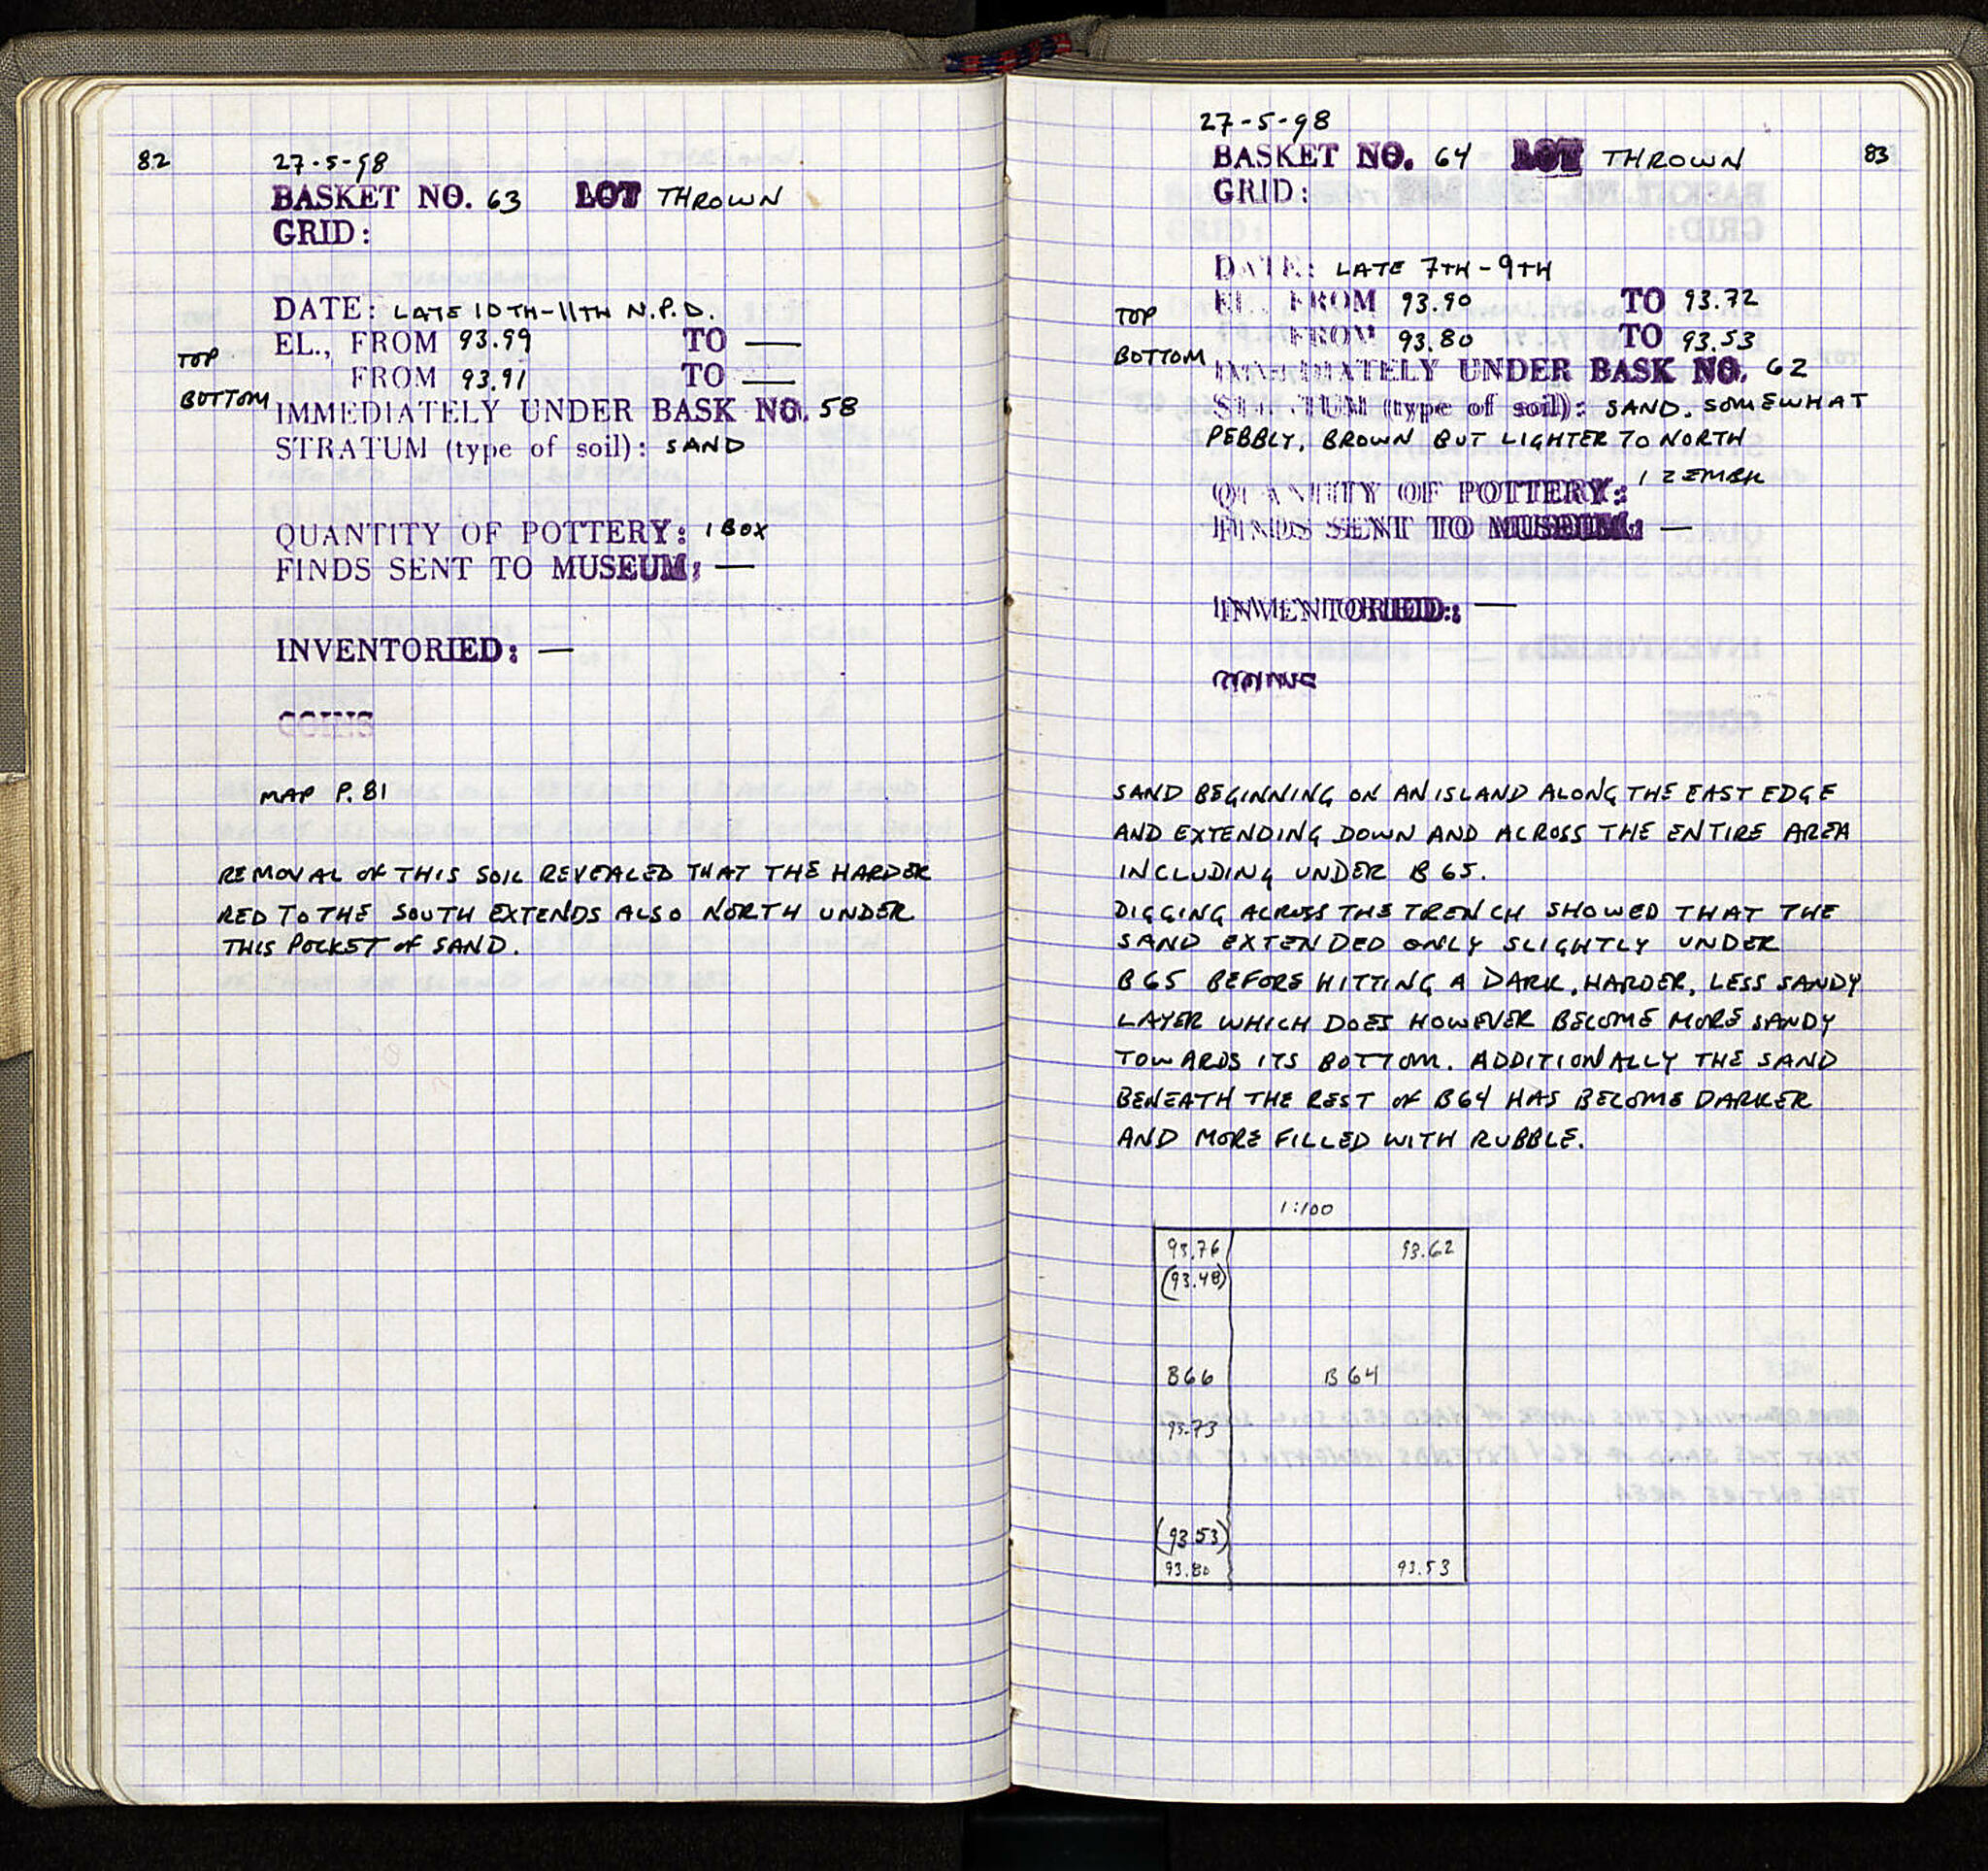 82
27-5-98
BASKET NO. 63 LOT THROWN
GRID:
DATE: LATE 10TH-11TH N.P.D.
TOP EL., FROM 93.99 TO —
BOTTOM FROM 93.91 TO —
IMMEDIATELY UNDER BASK NO. 58
STRATUM (type of soil): SAND
QUANTITY OF POTTERY: 1 BOX
FINDS SENT TO MUSEUM: —
INVENTORIED: —
COINS
MAP P. 81
REMOVAL OF THIS SOIL REVEALED THAT THE HARDER
RED TO THE SOUTH EXTENDS ALSO NORTH UNDER
THIS POCKET OF SAND.
83
27-5-98
BASKET NO. 64 LOT THROWN
GRID:
DATE: LATE 7TH-9TH
TOP EL., FROM 93.90 TO 93.72
BOTTOM FROM 93.80 TO 93.53
IMMEDIATELY UNDER BASK NO. 62
STRATUM (type of soil): SAND. SOMEWHAT
PEBBLY, BROWN BUT LIGHTER TO NORTH
QUANTITY OF POTTERY: 1 ZEMBIL
FINDS SENT TO MUSEUM: —
INVENTORIED: —
COINS
SAND BEGINNING ON AN ISLAND ALONG THE EAST EDGE
AND EXTENDING DOWN AND ACROSS THE ENTIRE AREA
INCLUDING UNDER B 65.
DIGGING ACROSS THE TRENCH SHOWED THAT THE
SAND EXTENDED ONLY SLIGHTLY UNDER
B65 BEFORE HITTING A DARK, HARDER, LESS SANDY
LAYER WHICH DOES HOWEVER BECOME MORE SANDY
TOWARDS ITS BOTTOM. ADDITIONALLY THE SAND
BENEATH THE REST OF B64 HAS BECOME DARKER
AND MORE FILLED WITH RUBBLE.
1:100
93.76 93.62
(93.48)
B66 B 64
93.73
(93.53)
93.80 93.53